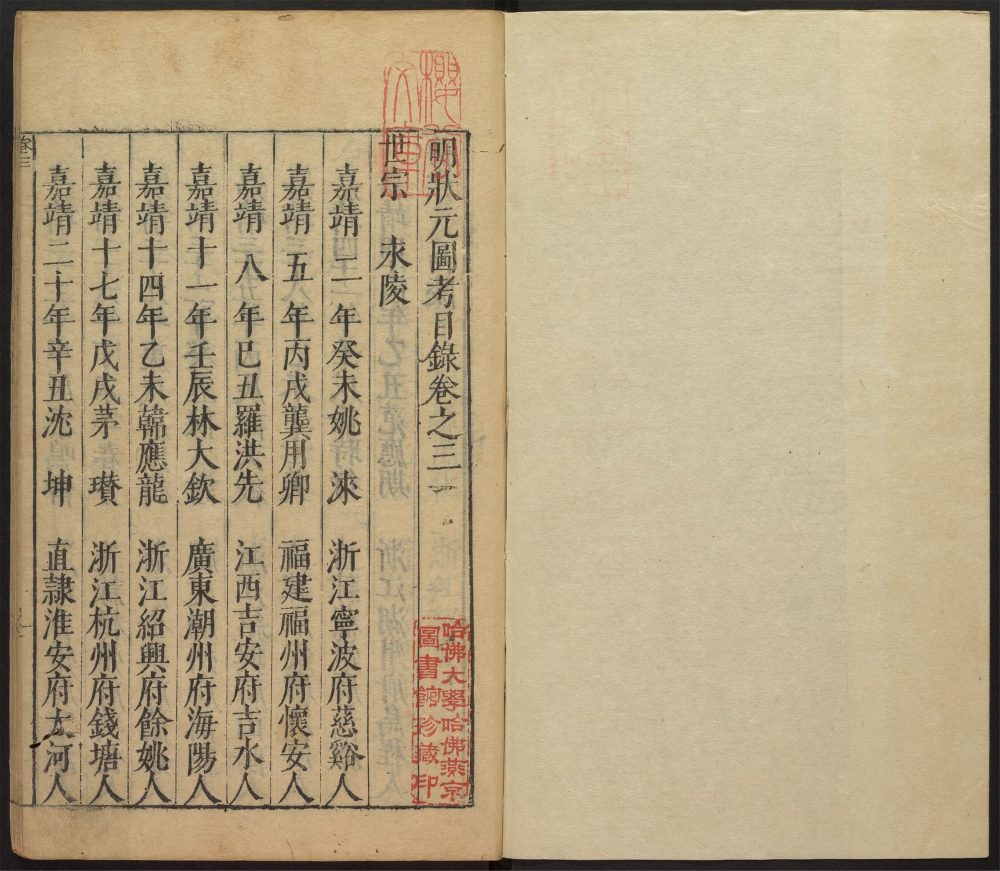 明狀元圖考目錄卷之三
世宗 永陵
嘉靖二年癸未姚淶 浙江寧波府慈谿人
嘉靖五年丙戌龔用卿 福建福州府懷安人
嘉靖八年己丑羅洪先 江西吉安府吉水人
嘉靖十一年壬辰林大欽 廣東潮州府海陽人
嘉靖十四年乙未韓應龍 浙江紹興府餘姚人
嘉靖十七年戊戌茅瓚 浙江杭州府錢塘人
嘉靖二十年辛丑沈坤 直隸淮安府大河人
卷三
哈佛大學哈佛燕京
圖書館珍藏印